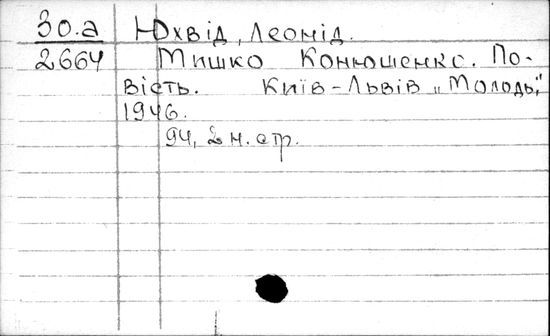 30.а Юхвід, Леонід.
2664 Мишко Конюшенко. По-
вість. Київ-Львів „Молодь,"
1946.
94, 2 н. стр.